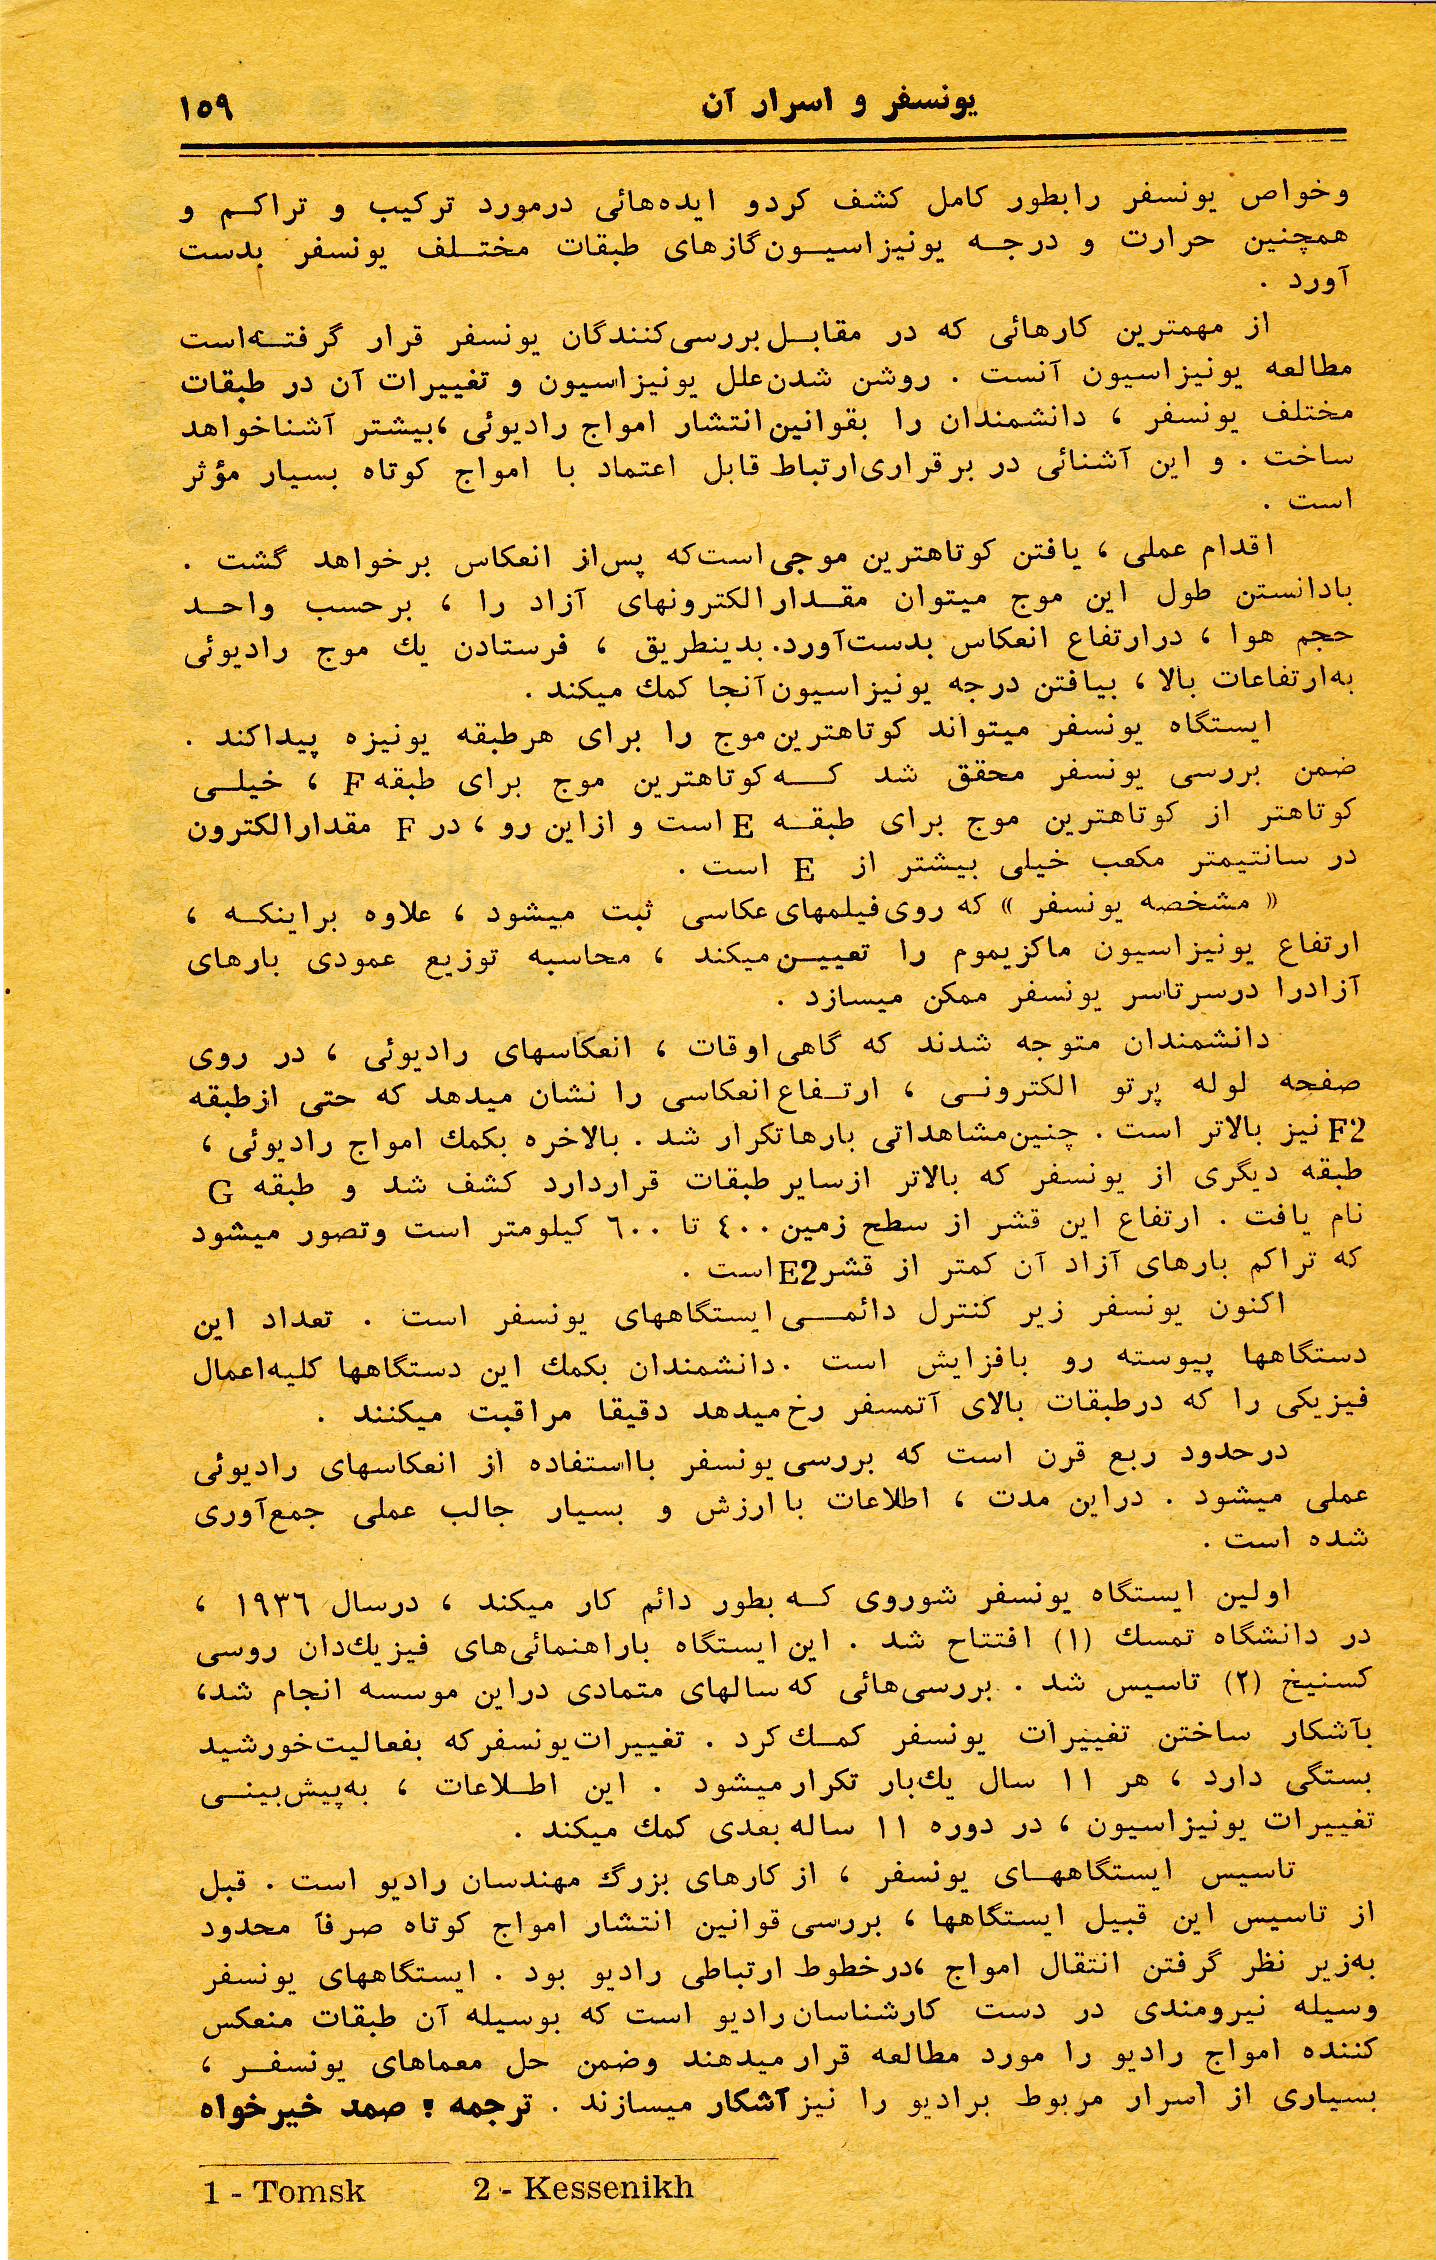 یونسفر و اسرار آن
۱۵۹
وخواص یونسفر رابطور کامل کشف کردو ایده‌هائی درمورد ترکیب و تراکم و
همچنین حرارت و درجه یونیزاسیون گازهای طبقات مختلف یونسفر بدست
آورد .
از مهمترین کارهائی که در مقابل بررسی‌کنندگان یونسفر قرار گرفته‌است
مطالعه یونیزاسیون آنست . روشن شدن علل یونیزاسیون و تغییرات آن در طبقات
مختلف یونسفر ، دانشمندان را بقوانین انتشار امواج رادیوئی ،بیشتر آشناخواهد
ساخت . و این آشنائی در برقراری ارتباط قابل اعتماد با امواج کوتاه بسیار مؤثر
است .
اقدام عملی ، یافتن کوتاهترین موجی است‌که پس‌از انعکاس برخواهد گشت .
بادانستن طول این موج میتوان مقدار الکترونهای آزاد را ، برحسب واحد
حجم هوا ، درارتفاع انعکاس بدست‌آورد. بدینطریق ، فرستادن یك موج رادیوئی
به‌ارتفاعات بالا ، بیافتن درجه یونیزاسیون آنجا کمك میکند .
ایستگاه یونسفر میتواند کوتاهترین موج را برای هرطبقه یونیزه پیداکند .
ضمن بررسی یونسفر محقق شد که کوتاهترین موج برای طبقه F ، خیلی
کوتاهتر از کوتاهترین موج برای طبقه E است و ازاین رو ، در F مقدارالکترون
در سانتیمتر مکعب خیلی بیشتر از E است .
« مشخصه یونسفر » که روی فیلمهای عکاسی ثبت میشود ، علاوه براینکه ،
ارتفاع یونیزاسیون ماکزیموم را تعیین میکند ، محاسبه توزیع عمودی بارهای
آزادرا درسرتاسر یونسفر ممکن میسازد .
دانشمندان متوجه شدند که گاهی اوقات ، انعکاسهای رادیوئی ، در روی
صفحه لوله پرتو الکترونی ، ارتفاع انعکاسی را نشان میدهد که حتی ازطبقه
F2 نیز بالاتر است . چنین مشاهداتی بارها تکرار شد . بالاخره بکمك امواج رادیوئی ،
طبقه دیگری از یونسفر که بالاتر ازسایر طبقات قراردارد کشف شد و طبقه G
نام یافت . ارتفاع این قشر از سطح زمین ٤٠٠ تا ٦٠٠ کیلومتر است وتصور میشود
که تراکم بارهای آزاد آن کمتر از قشر E2 است .
اکنون یونسفر زیر کنترل دائمی ایستگاههای یونسفر است . تعداد این
دستگاهها پیوسته رو بافزایش است .دانشمندان بکمك این دستگاهها کلیه‌اعمال
فیزیکی را که درطبقات بالای آتمسفر رخ میدهد دقیقا مراقبت میکنند .
درحدود ربع قرن است که بررسی یونسفر بااستفاده از انعکاسهای رادیوئی
عملی میشود . دراین مدت ، اطلاعات با ارزش و بسیار جالب عملی جمع‌آوری
شده است .
اولین ایستگاه یونسفر شوروی که بطور دائم کار میکند ، درسال ۱۹۳٦ ،
در دانشگاه تمسك (۱) افتتاح شد . این ایستگاه باراهنمائی‌های فیزیك‌دان روسی
کسنیخ (۲) تاسیس شد . بررسی‌هائی که سالهای متمادی دراین موسسه انجام شد،
بآشکار ساختن تغییرات یونسفر کمك کرد . تغییرات یونسفرکه بفعالیت‌خورشید
بستگی دارد ، هر ۱۱ سال یك‌بار تکرار میشود . این اطلاعات ، به‌پیش‌بینی
تغییرات یونیزاسیون ، در دوره ۱۱ ساله بعدی کمك میکند .
تاسیس ایستگاههای یونسفر ، از کارهای بزرگ مهندسان رادیو است . قبل
از تاسیس این قبیل ایستگاهها ، بررسی قوانین انتشار امواج کوتاه صرفاً محدود
به‌زیر نظر گرفتن انتقال امواج ،درخطوط ارتباطی رادیو بود . ایستگاههای یونسفر
وسیله نیرومندی در دست کارشناسان رادیو است که بوسیله آن طبقات منعکس
کننده امواج رادیو را مورد مطالعه قرار میدهند وضمن حل معماهای یونسفر ،
بسیاری از اسرار مربوط برادیو را نیز آشکار میسازند . ترجمه : صمد خیرخواه
1 - Tomsk 2 - Kessenikh